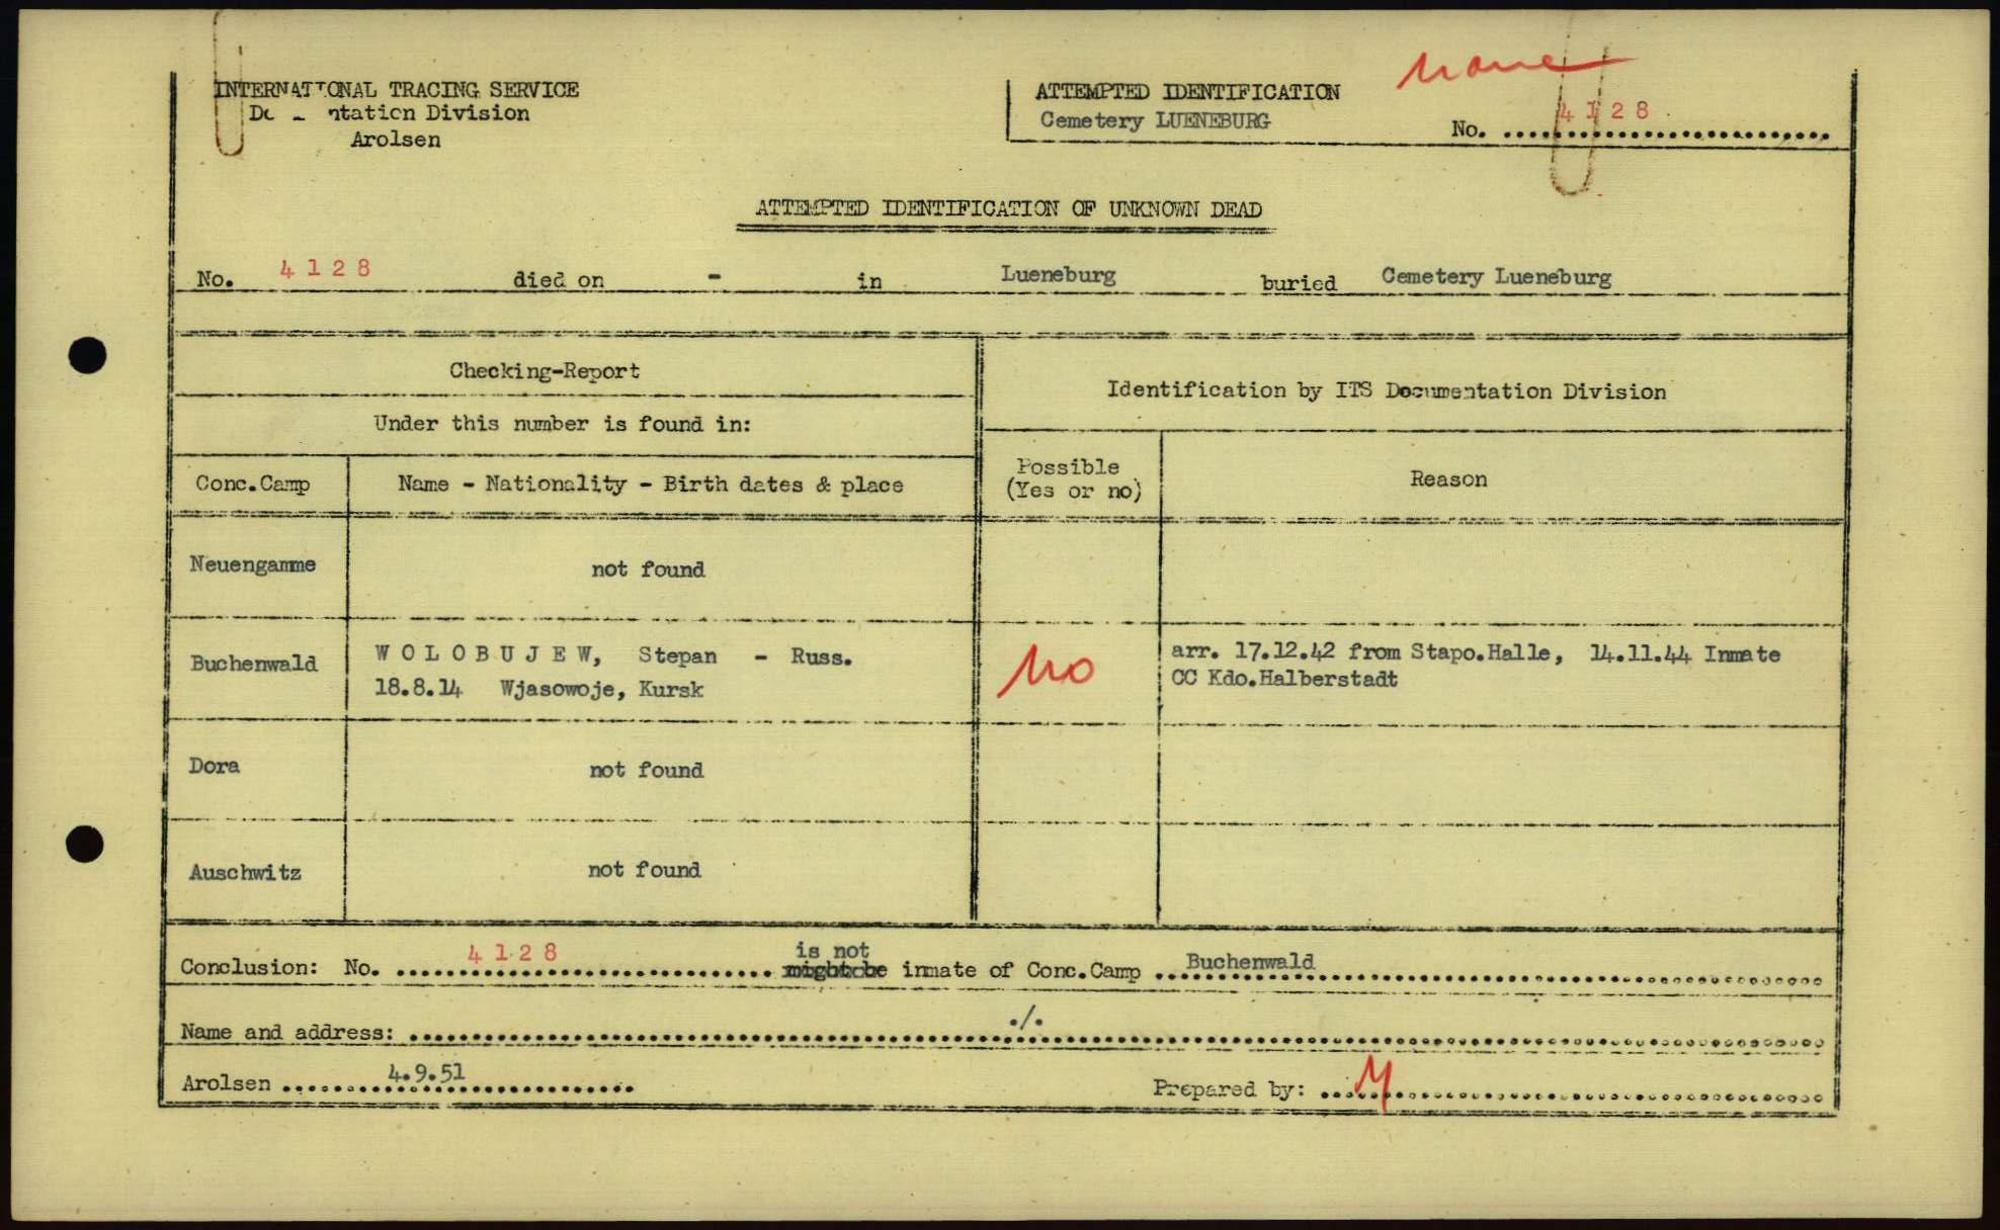 none
INTERNATIONAL TRACING SERVICE
Documentation Division
Arolsen
ATTEMPTED IDENTIFICATION
Cemetery LUENEBURG
No. 4128
ATTEMPTED IDENTIFICATION OF UNKNOWN DEAD
No. 4128 died on - in Lueneburg buried Cemetery Lueneburg
Checking-Report
Under this number is found in:
Identification by ITS Documentation Division
Conc.Camp Name - Nationality - Birth dates & place Possible (Yes or no) Reason
Neuengamme not found
Buchenwald WOLOBUJEW, Stepan - Russ. no arr. 17.12.42 from Stapo.Halle, 14.11.44 Inmate
18.8.14 Wjasowoje, Kursk CC Kdo.Halberstadt
Dora not found
Auschwitz not found
is not
Conclusion: No. 4128 might be inmate of Conc.Camp Buchenwald
Name and address: ./.
Arolsen 4.9.51 Prepared by: